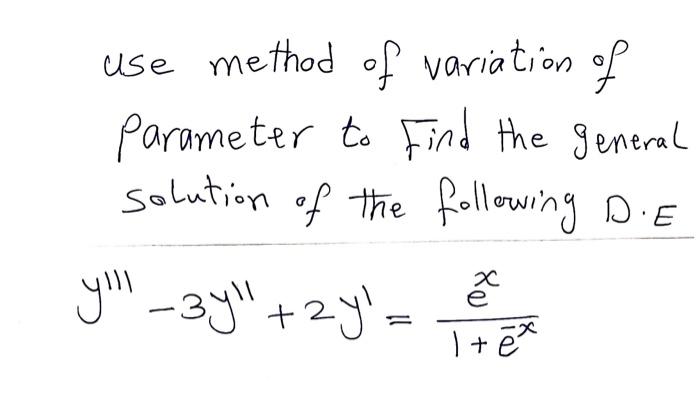 use method of variation of
Parameter to Find the general
solution of the following D.E
y''' - 3y'' + 2y' = e^x / (1 + e^-x)